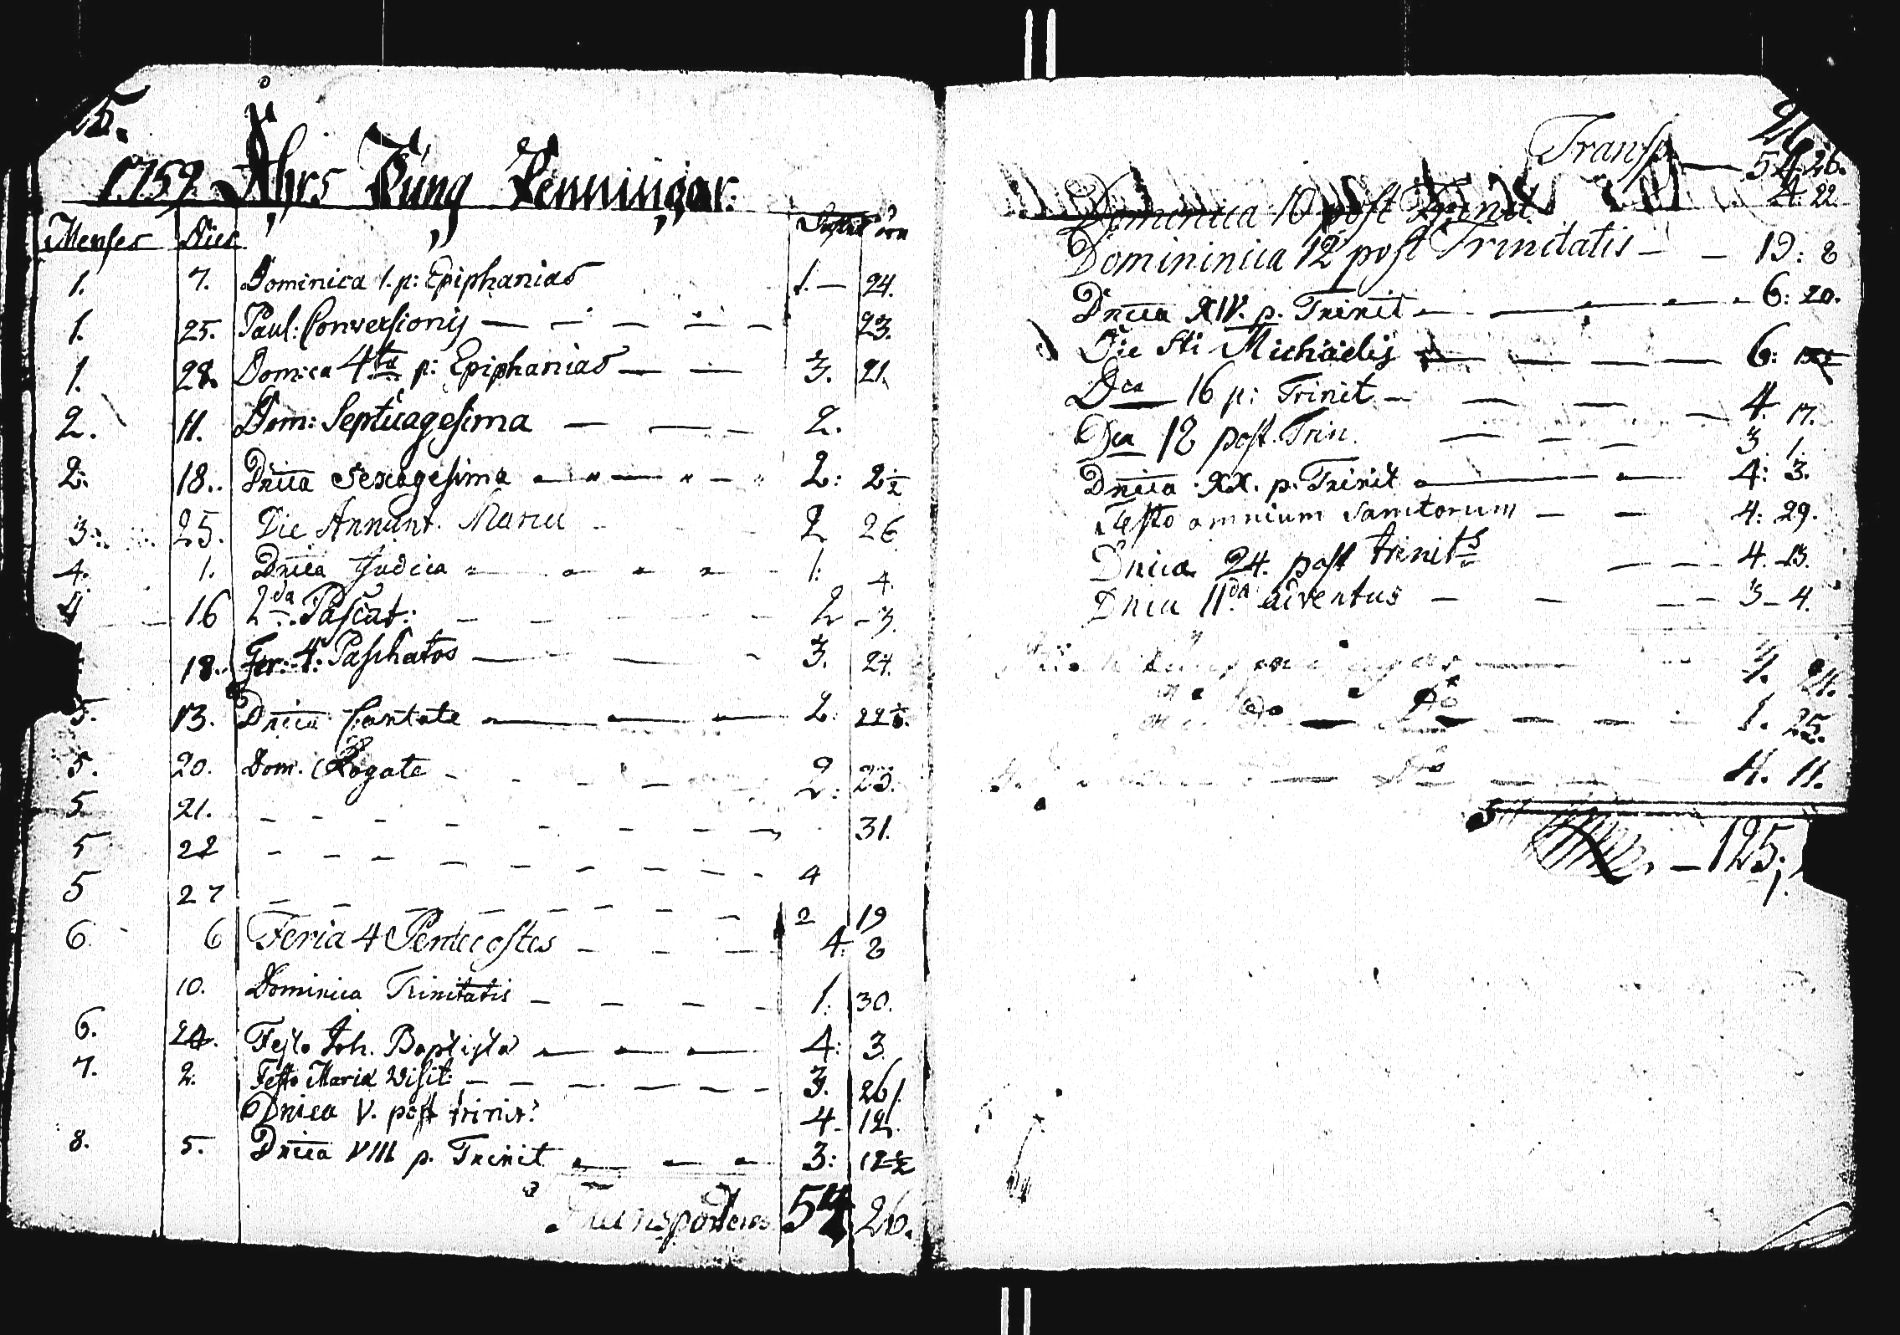 25.
1759 Åhrs Pung Penningar.
Menses Dies
1. 7. Dominica 1. p: Epiphanias 1. — 24.
1. 25. Paul: Conversionis — — — — 23.
1. 28. Domca 4ta p: Epiphanias — — 3. 21.
2. 11. Dom: Septuagesima — — — 2.
2. 18. Dnica Sexagesima — — — 2: 2½
3. 25. Die Annunt. Mariæ 2 26
4. 1. Dnica Judica — — — — 1: 4.
4 16 2da Pascat: — — — 2 – 3.
18. Fer: 4: Paschatos — — 3. 24.
5. 13. Dnica Cantate — — — 2: 22
5. 20. Dom. Rogate — — — 2: 23.
5. 21. — — — — — 31.
5 22 — — — — — 4
5 27 — — — — — 2 19
6 6 Feria 4 Pentecostes — — — 4. 8
10. Dominica Trinitatis — — — 1. 30.
6. 24. Festo Joh. Baptistæ — — — 4: 3.
7. 2. Festo Mariæ Visit: — — — 3. 26.
Dnica V. post trinit: 4. 12.
8. 5. Dnica VIII p. Trinit — — — 3: 12½
Transporteras 54 26.
26.
Transp — 54. 26.
Dominica 10 post Trinit. 4. 22.
Domininica 12 post Trinitatis — — 19: 8
Dnica XIV. p. Trinit — — — 6: 20.
Die Sti Michaelis — — — 6:
Dca 16 p: Trinit — — — 4. 17.
Dca 18 post. Trin. — — — 3. 1.
Dnica XX. p. Trinit — — 4: 3.
Festo omnium Sanctorum — — 4: 29.
Dnica 24. post trinits — — — 4. 13.
Dnica IIda adventus — — — 3 – 4.
24.
Do — — — 1. 25.
Do — — 4. 11.
— 125;